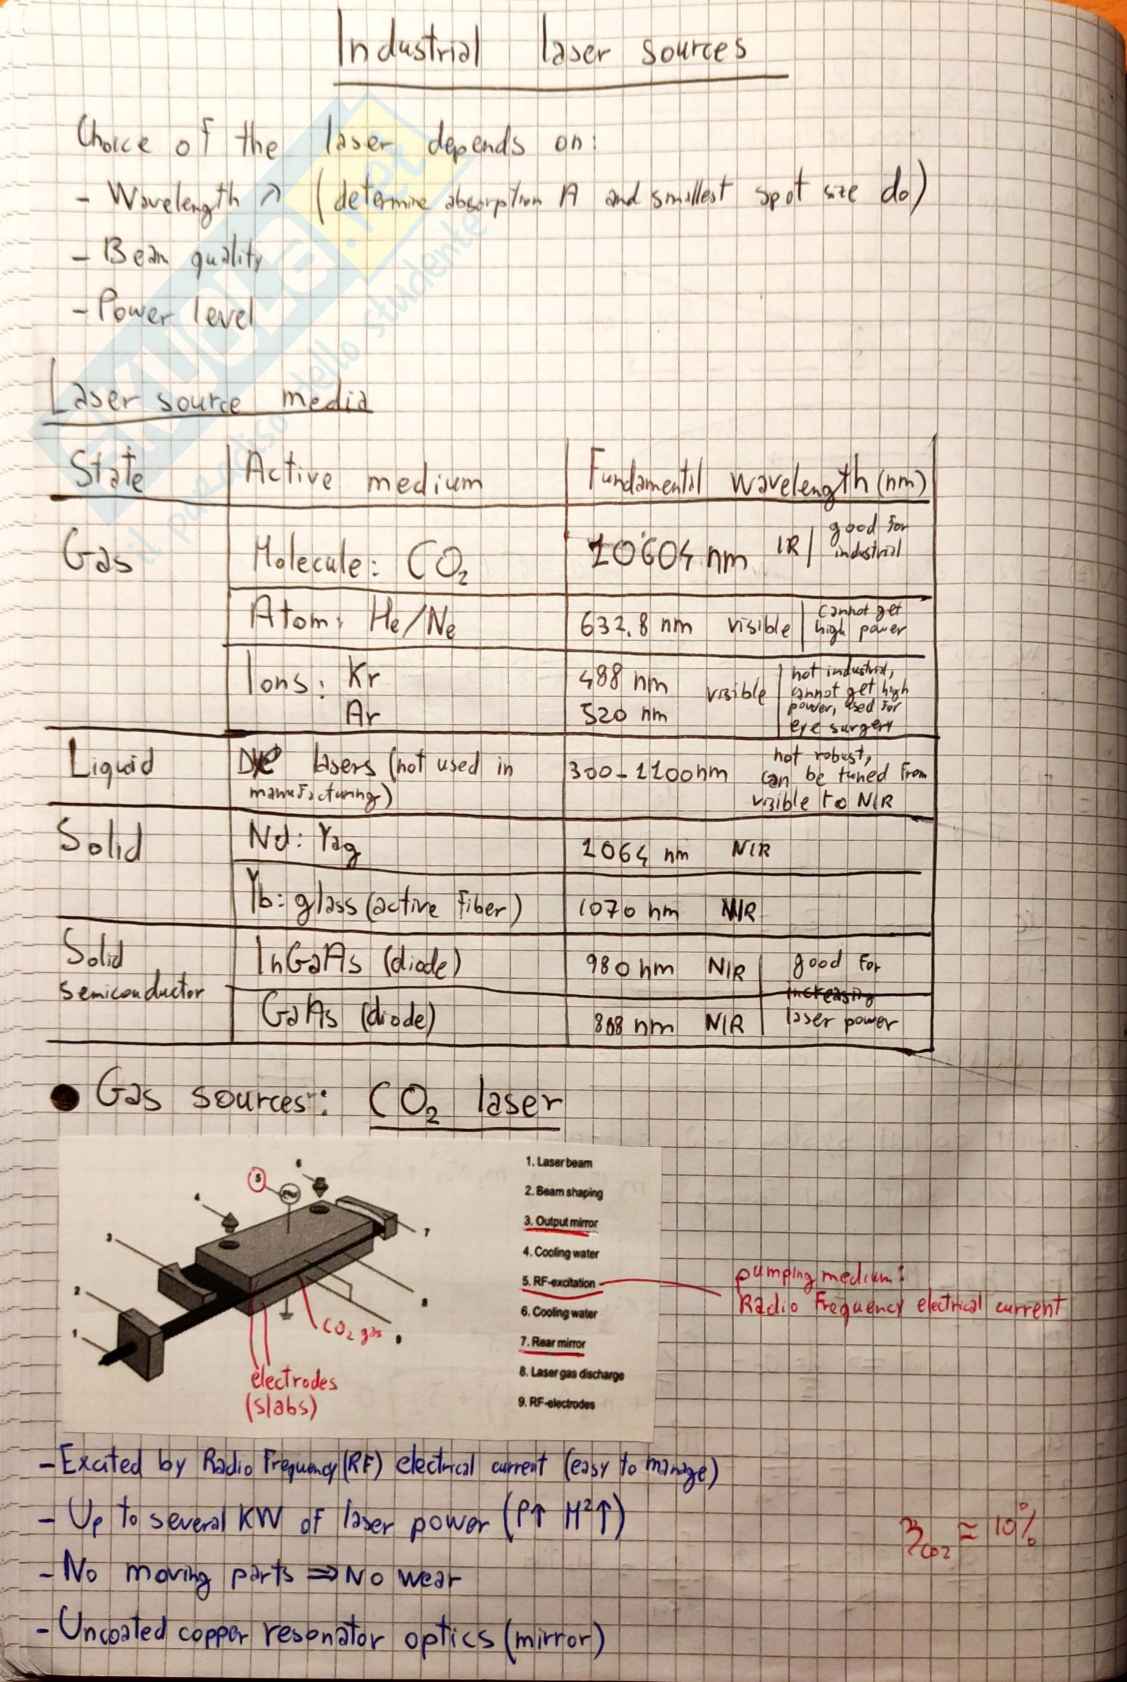 Industrial laser sources
Choice of the laser depends on:
- Wavelength λ (determine absorption A and smallest spot size do)
- Beam quality
- Power level
Laser source media
State Active medium Fundamental wavelength (nm)
Gas Molecule: CO2 10604 nm IR good for industrial
Atom: He/Ne 632.8 nm visible cannot get high power
Ions: Kr 488 nm visible not industrial, cannot get high power, used for eye surgery
Ar 520 nm
Liquid Dye lasers (not used in manufacturing) 300-1100nm not robust, can be tuned from visible to NIR
Solid Nd: Yag 1064 nm NIR
Yb: glass (active fiber) 1070 nm NIR
Solid semiconductor InGaAs (diode) 980 nm NIR good for increasing laser power
GaAs (diode) 808 nm NIR
• Gas sources: CO2 laser
1. Laser beam
2. Beam shaping
3. Output mirror
4. Cooling water
5. RF-excitation
6. Cooling water
7. Rear mirror
8. Laser gas discharge
9. RF-electrodes
1
2
3
4
5
6
7
8
9
CO2 gas
electrodes
(slabs)
pumping medium:
Radio Frequency electrical current
- Excited by Radio Frequency (RF) electrical current (easy to manage)
- Up to several KW of laser power (P↑ M²↑)
- No moving parts ⇒ No wear
- Uncoated copper resonator optics (mirror)
ηCO2 ≃ 10%
SKUOLA.net
il paradiso dello studente